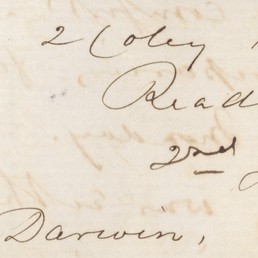 2 Coley
Read
2nd
Darwin,